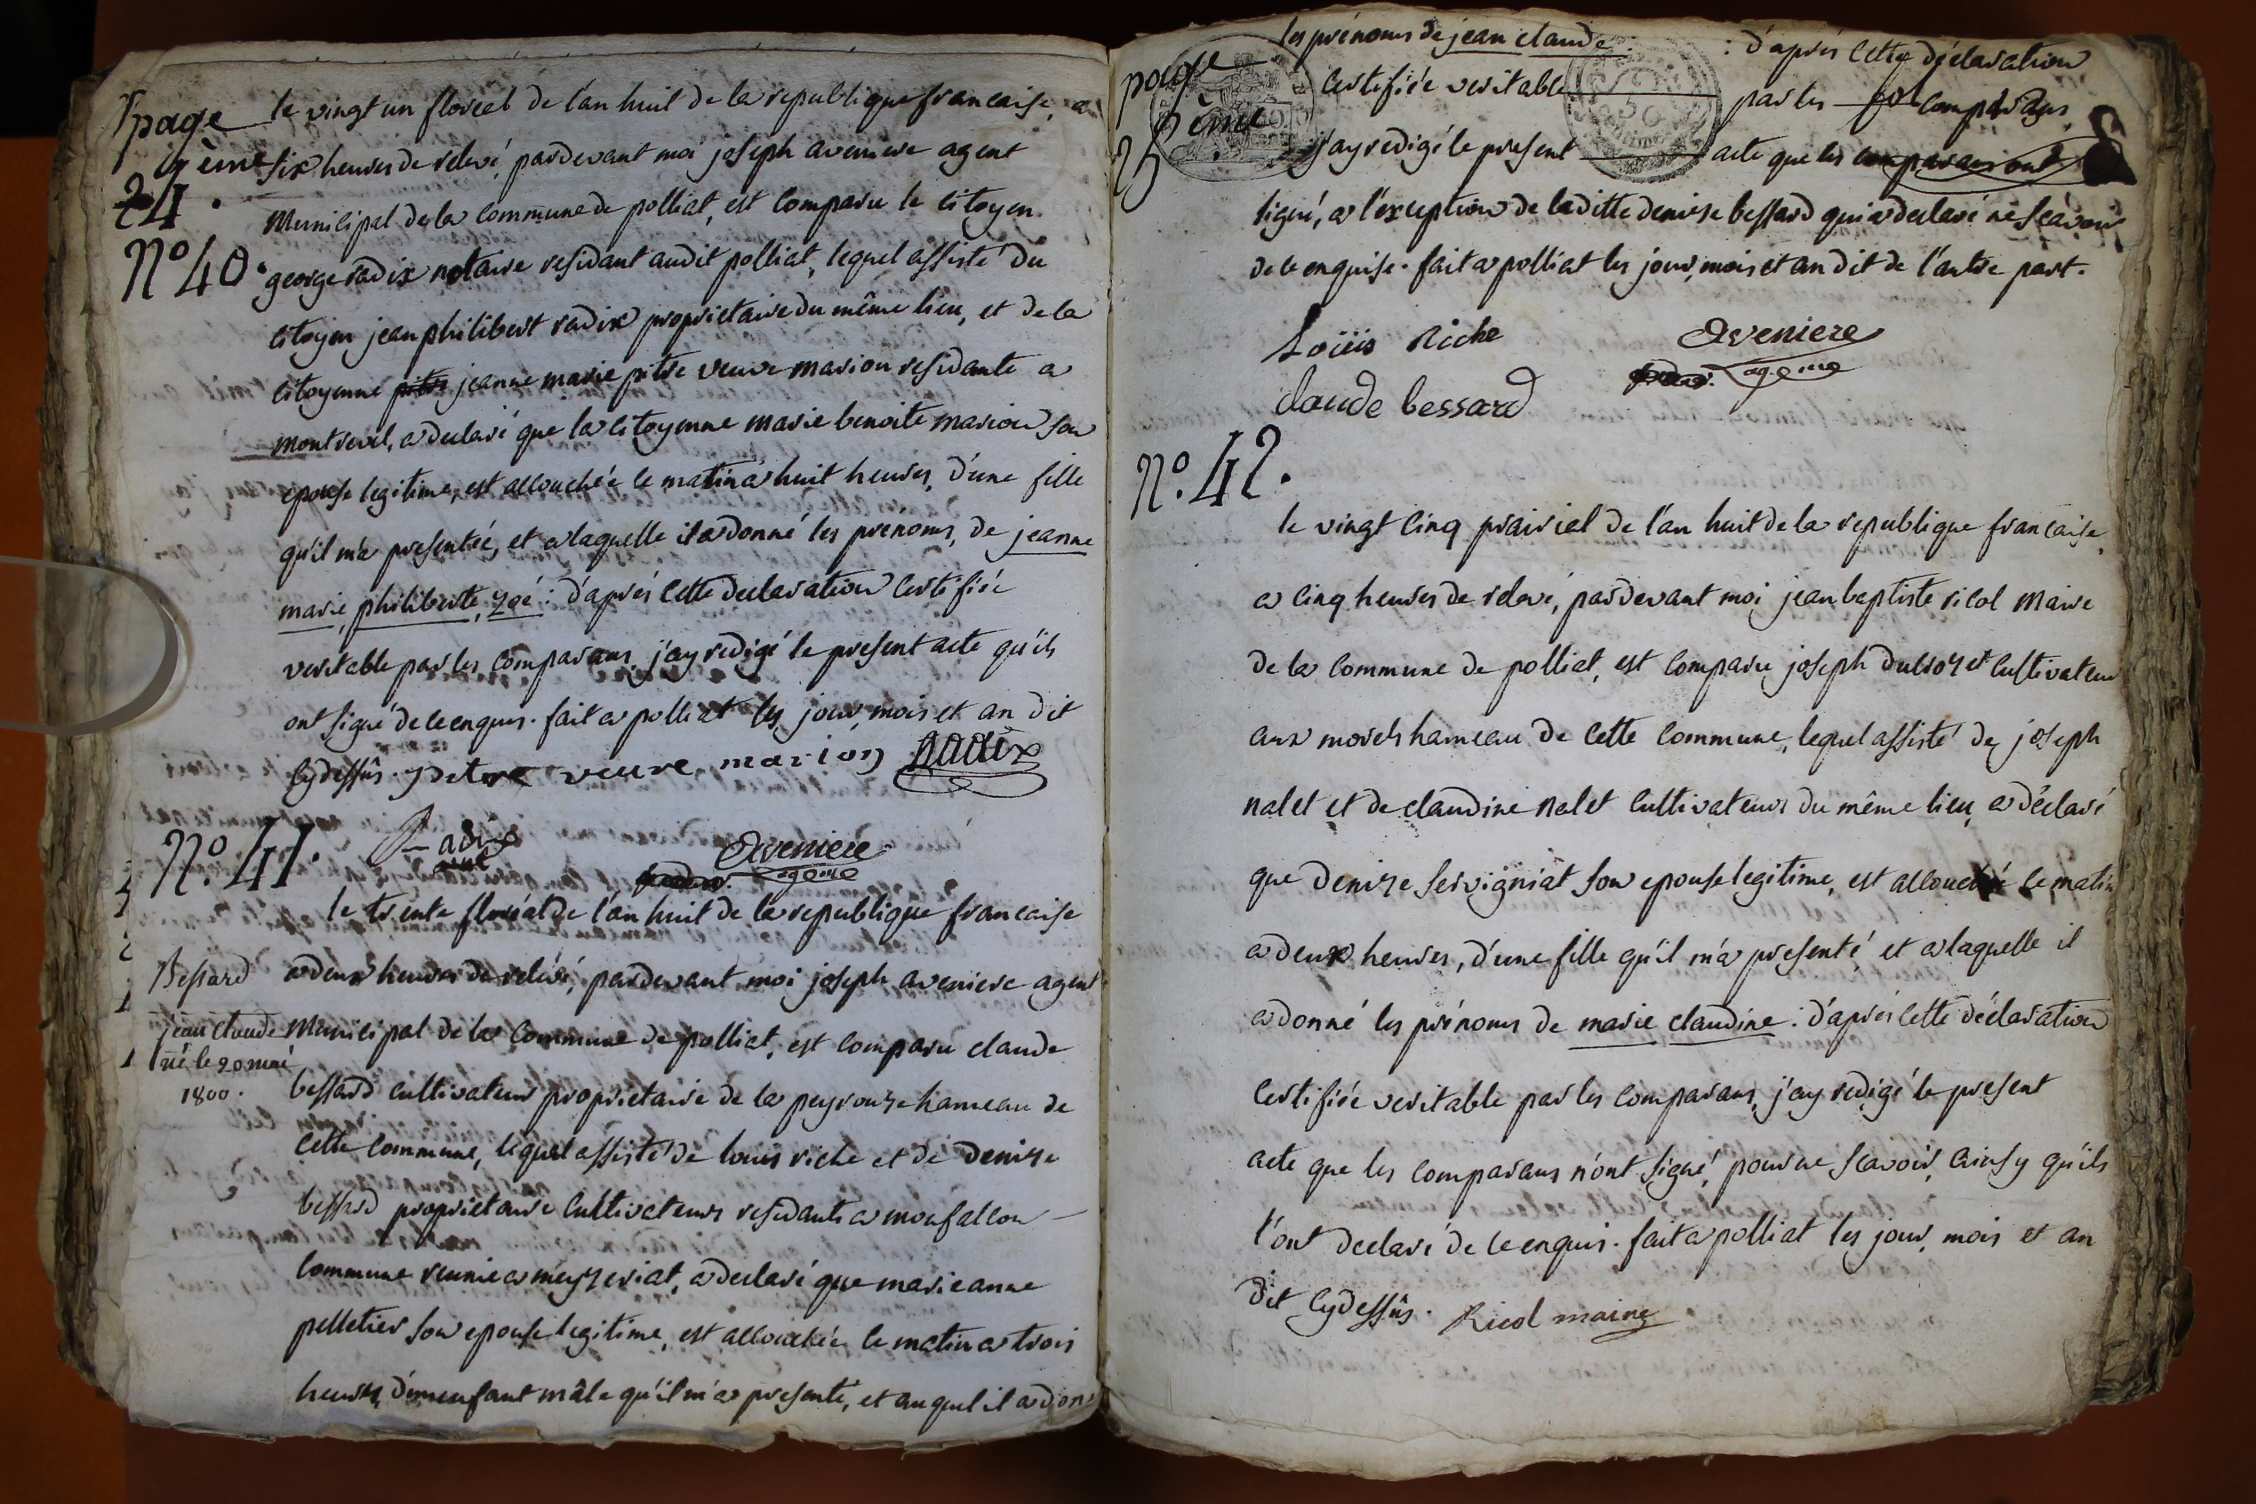 page
24ème.
le vingt un floreal de l'an huit de la republique francaise, a
six heures de relevé, pardevant moi joseph aveniere agent
Municipal de la Commune de polliat, est Comparu le Citoyen
N° 40.
george radix notaire residant audit polliat, lequel assisté du
Citoyen jean philibert radix proprietaire du même lieu, et de la
Citoyenne jeanne marie pitre veuve marion residante a
montrevel, a declaré que la Citoyenne marie benoite marion son
epouse legitime, est accouchée le matin a huit heures, d'une fille
qu'il m'a presentée, et a laquelle il a donné les prenoms, de jeanne
marie, philiberte, zoé : d'aprés Cette declaration Certifiée
veritable par les Comparans, j'ay redigé le present acte qu'ils
ont signé de ce enquis. fait a polliat les jour, mois et an dit
Cydessûs. pitre veuve marion radix
Radix
Aveniere
agent
N° 41.
le trente floréal de l'an huit de la republique francaise
a deux heures de relevé, pardevant moi joseph aveniere agent
Bessard
jean claude
né le 20 mai
1800.
Municipal de la Commune de polliat, est Comparu claude
bessard Cultivateur proprietaire de la peyrouze hameau de
Cette Commune, lequel assisté de louis riche et de denize
bessard proprietaire Cultivateurs residants a monfalcon
Commune reunie a meyzeriat, a declaré que marie anne
pelletier son epouse legitime, est accouchée le matin a trois
heures, d'un enfant mâle qu'il m'a presenté, et auquel il a donné
page
25ème
les prénoms de jean claude : d'aprés Cette déclaration
Certifiée veritable par les Comparans,
j'ay redigé le present acte que les comparans ont
signé, a l'exception de laditte denize bessard qui a declaré ne scavoir
de ce enquise. fait a polliat les jour, mois et an dit de l'autre part.
Loüis Riche
Aveniere
agent
Claude bessard
N°. 42.
le vingt Cinq prairial de l'an huit de la republique francaise,
a Cinq heures de relevé, pardevant moi jean baptiste ricol Maire
de la Commune de polliat, est Comparu joseph ducrozet Cultivateur
aux morels hameau de Cette Commune, lequel assisté de joseph
nalet et de claudine nalet Cultivateurs du même lieu, a déclaré
que denize servigniat son epouse legitime, est accouchée le matin
a deux heures, d'une fille qu'il m'a presenté, et a laquelle il
a donné les prénoms de marie claudine : d'aprés Cette déclaration
Certifiée veritable par les Comparans, j'ay redigé le present
acte que les Comparans n'ont signé, pour ne scavoir, ainsy qu'ils
l'ont declaré de ce enquis. fait a polliat les jour, mois et an
dit Cydessûs. Ricol maire